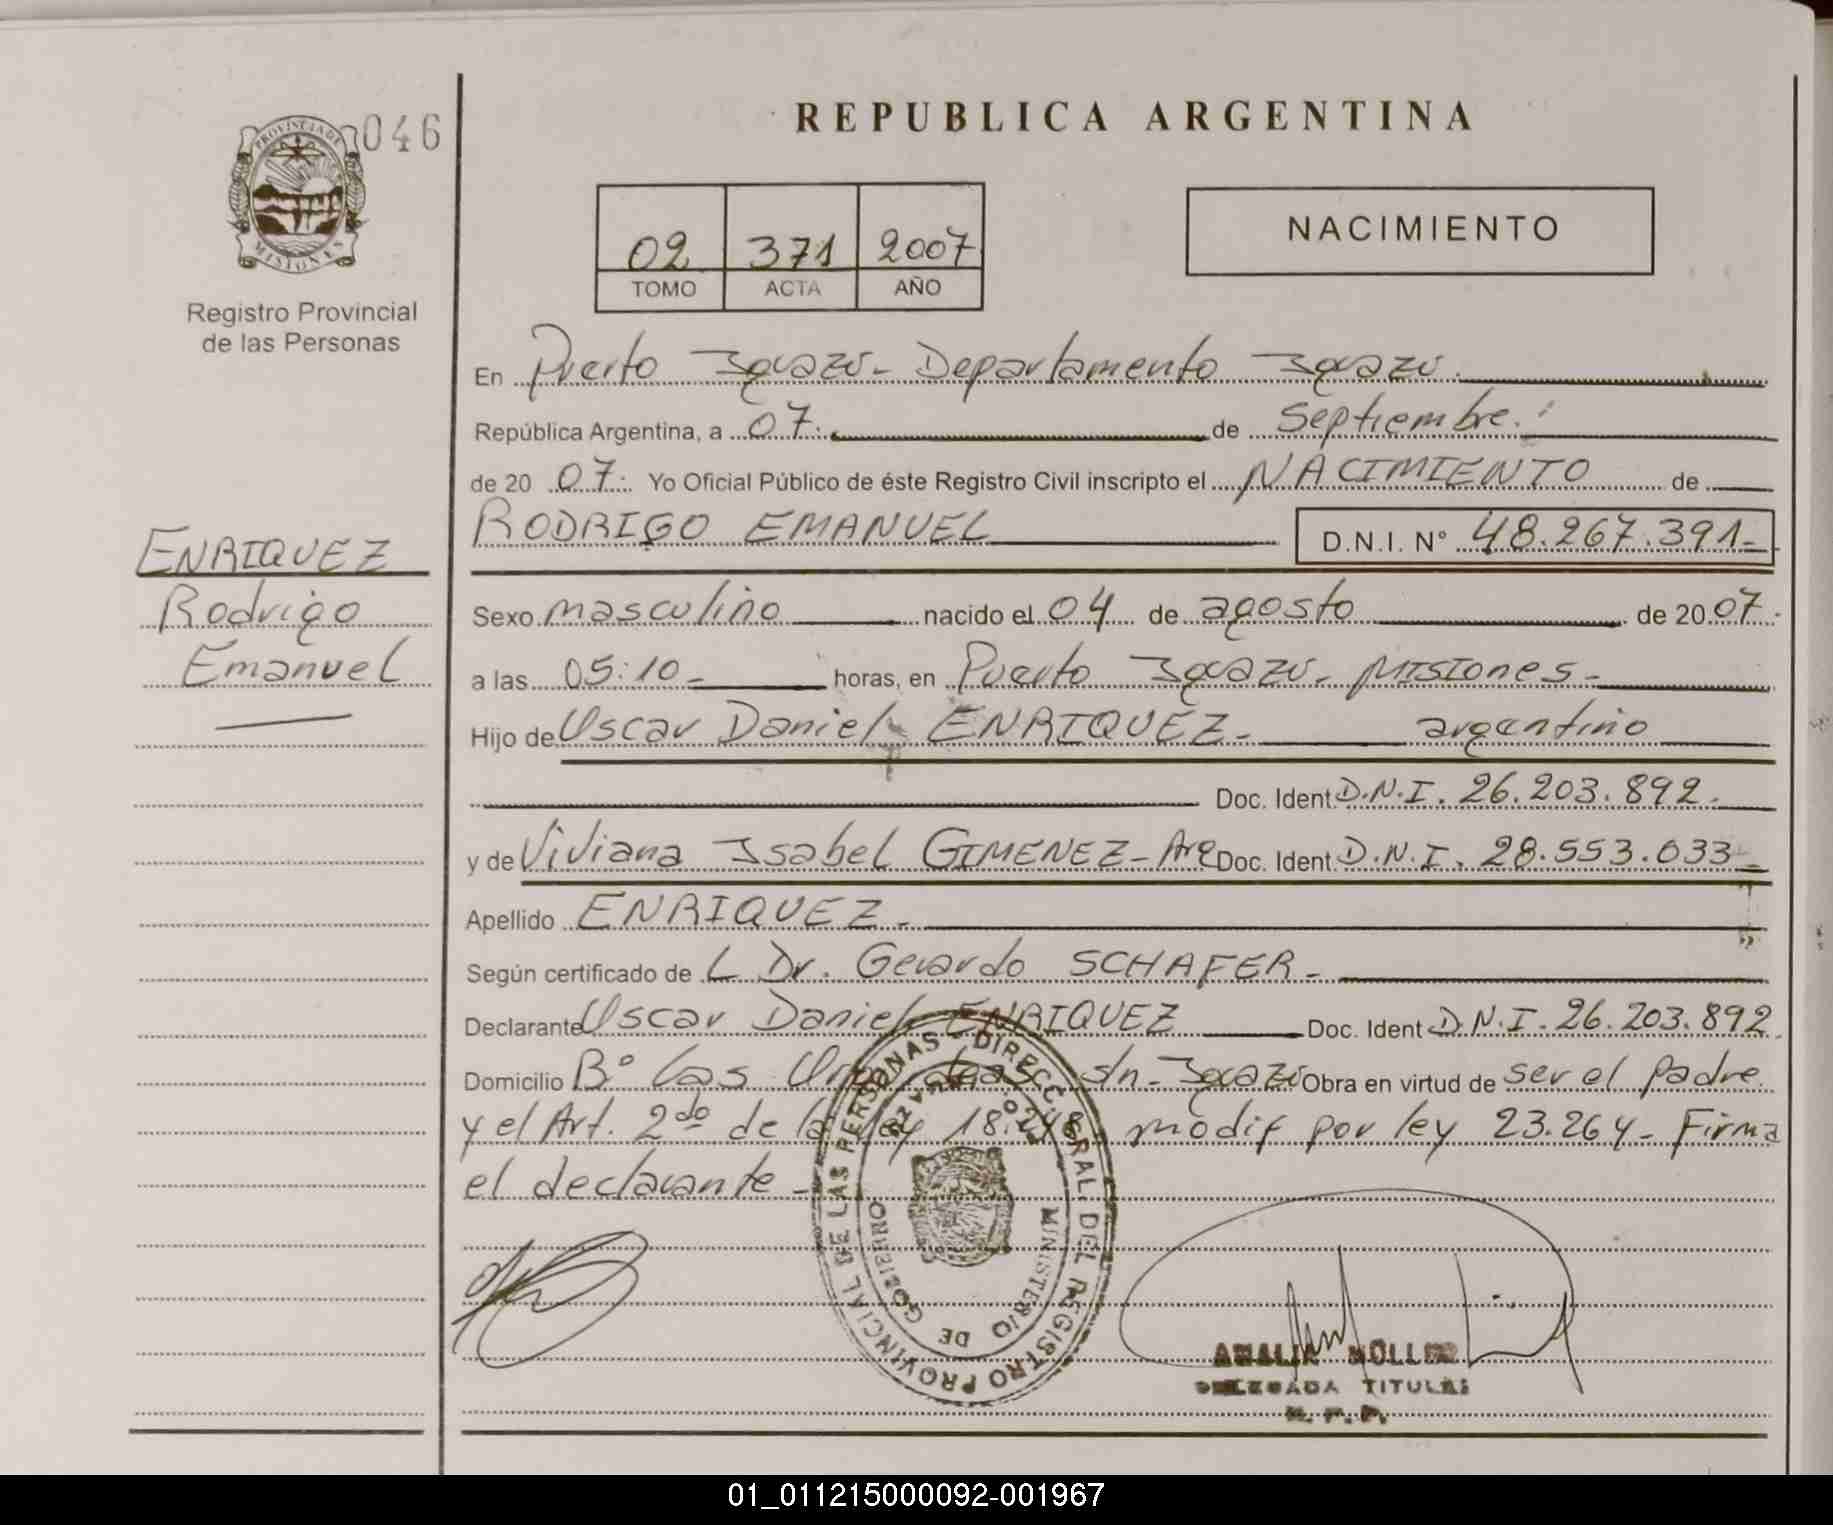 046
PROVINCIA DE
MISIONES
Registro Provincial
de las Personas
REPUBLICA ARGENTINA
02 371 2007
TOMO ACTA AÑO
NACIMIENTO
En Puerto Iguazú - Departamento Iguazú.
República Argentina, a 07. de Septiembre.
de 20 07. Yo Oficial Público de éste Registro Civil inscripto el NACIMIENTO de
RODRIGO EMANUEL D.N.I. N° 48.267.391-
ENRIQUEZ
Rodrigo
Emanuel
Sexo masculino nacido el 04 de agosto de 20 07.
a las 05:10 - horas, en Puerto Iguazú - MISIONES -
Hijo de Oscar Daniel ENRIQUEZ - argentino
Doc. Ident. D.N.I. 26.203.892.
y de Viviana Isabel GIMENEZ - Arg Doc. Ident. D.N.I. 28.553.033 -
Apellido ENRIQUEZ -
Según certificado de L Dr. Gerardo SCHAFER -
Declarante Oscar Daniel ENRIQUEZ Doc. Ident D.N.I. 26.203.892
Domicilio B° Las s/n - Iguazú Obra en virtud de ser el padre
y el Art. 2do de la ley 18.248 modif por ley 23.264 - Firma
el declarante -
DIRECC. GRAL. DEL REGISTRO PROVINCIAL DE LAS PERSONAS -
MINISTERIO DE GOBIERNO
AMALIA MÜLLER
DELEGADA TITULAR
R. P. P.
01_011215000092-001967